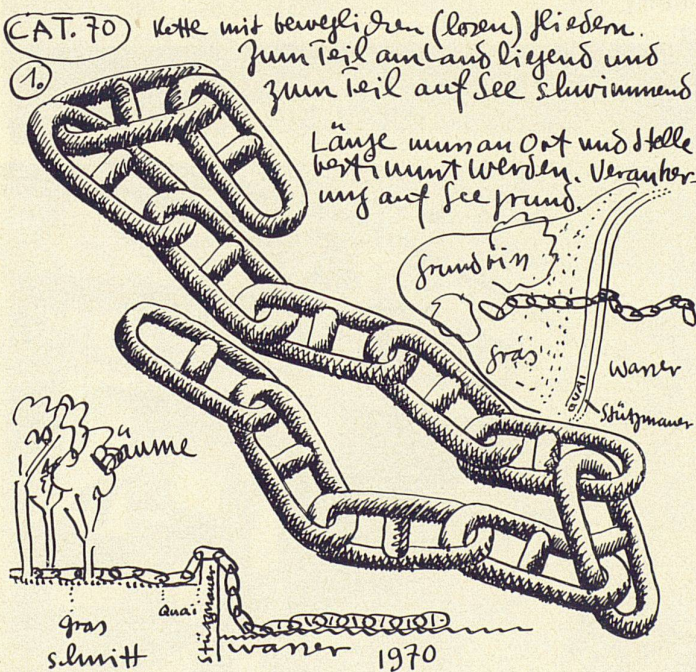 CAT. 70
1.
Kette mit beweglichen (losen) Gliedern.
Zum Teil am Land liegend und
zum Teil auf See schwimmend
Länge muss an Ort und Stelle
bestimmt werden. Veranker-
ung auf Seegrund.
Grundriss
Gras
Wasser
QUAI
Stützmauer
Bäume
Gras
Quai
Stützmauer
Wasser
Schnitt
1970